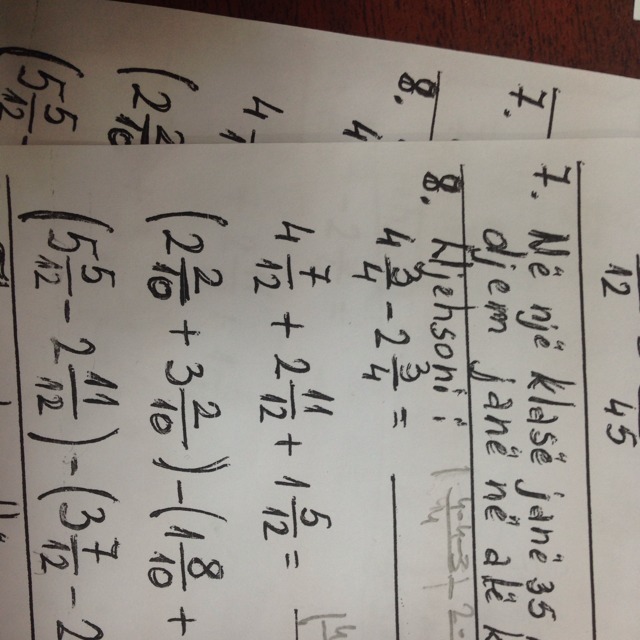 12 45
7. Në një klasë janë 35
djem janë në atë
8. Njehsoni:
4 3/4 - 2 3/4 =
4 7/12 + 2 11/12 + 1 5/12 =
(2 2/10 + 3 2/10) - (1 8/10 +
(5 5/12 - 2 11/12) - (3 7/12 - 2
7.
8.
4
4
(2 2/10
(5 5/12 -